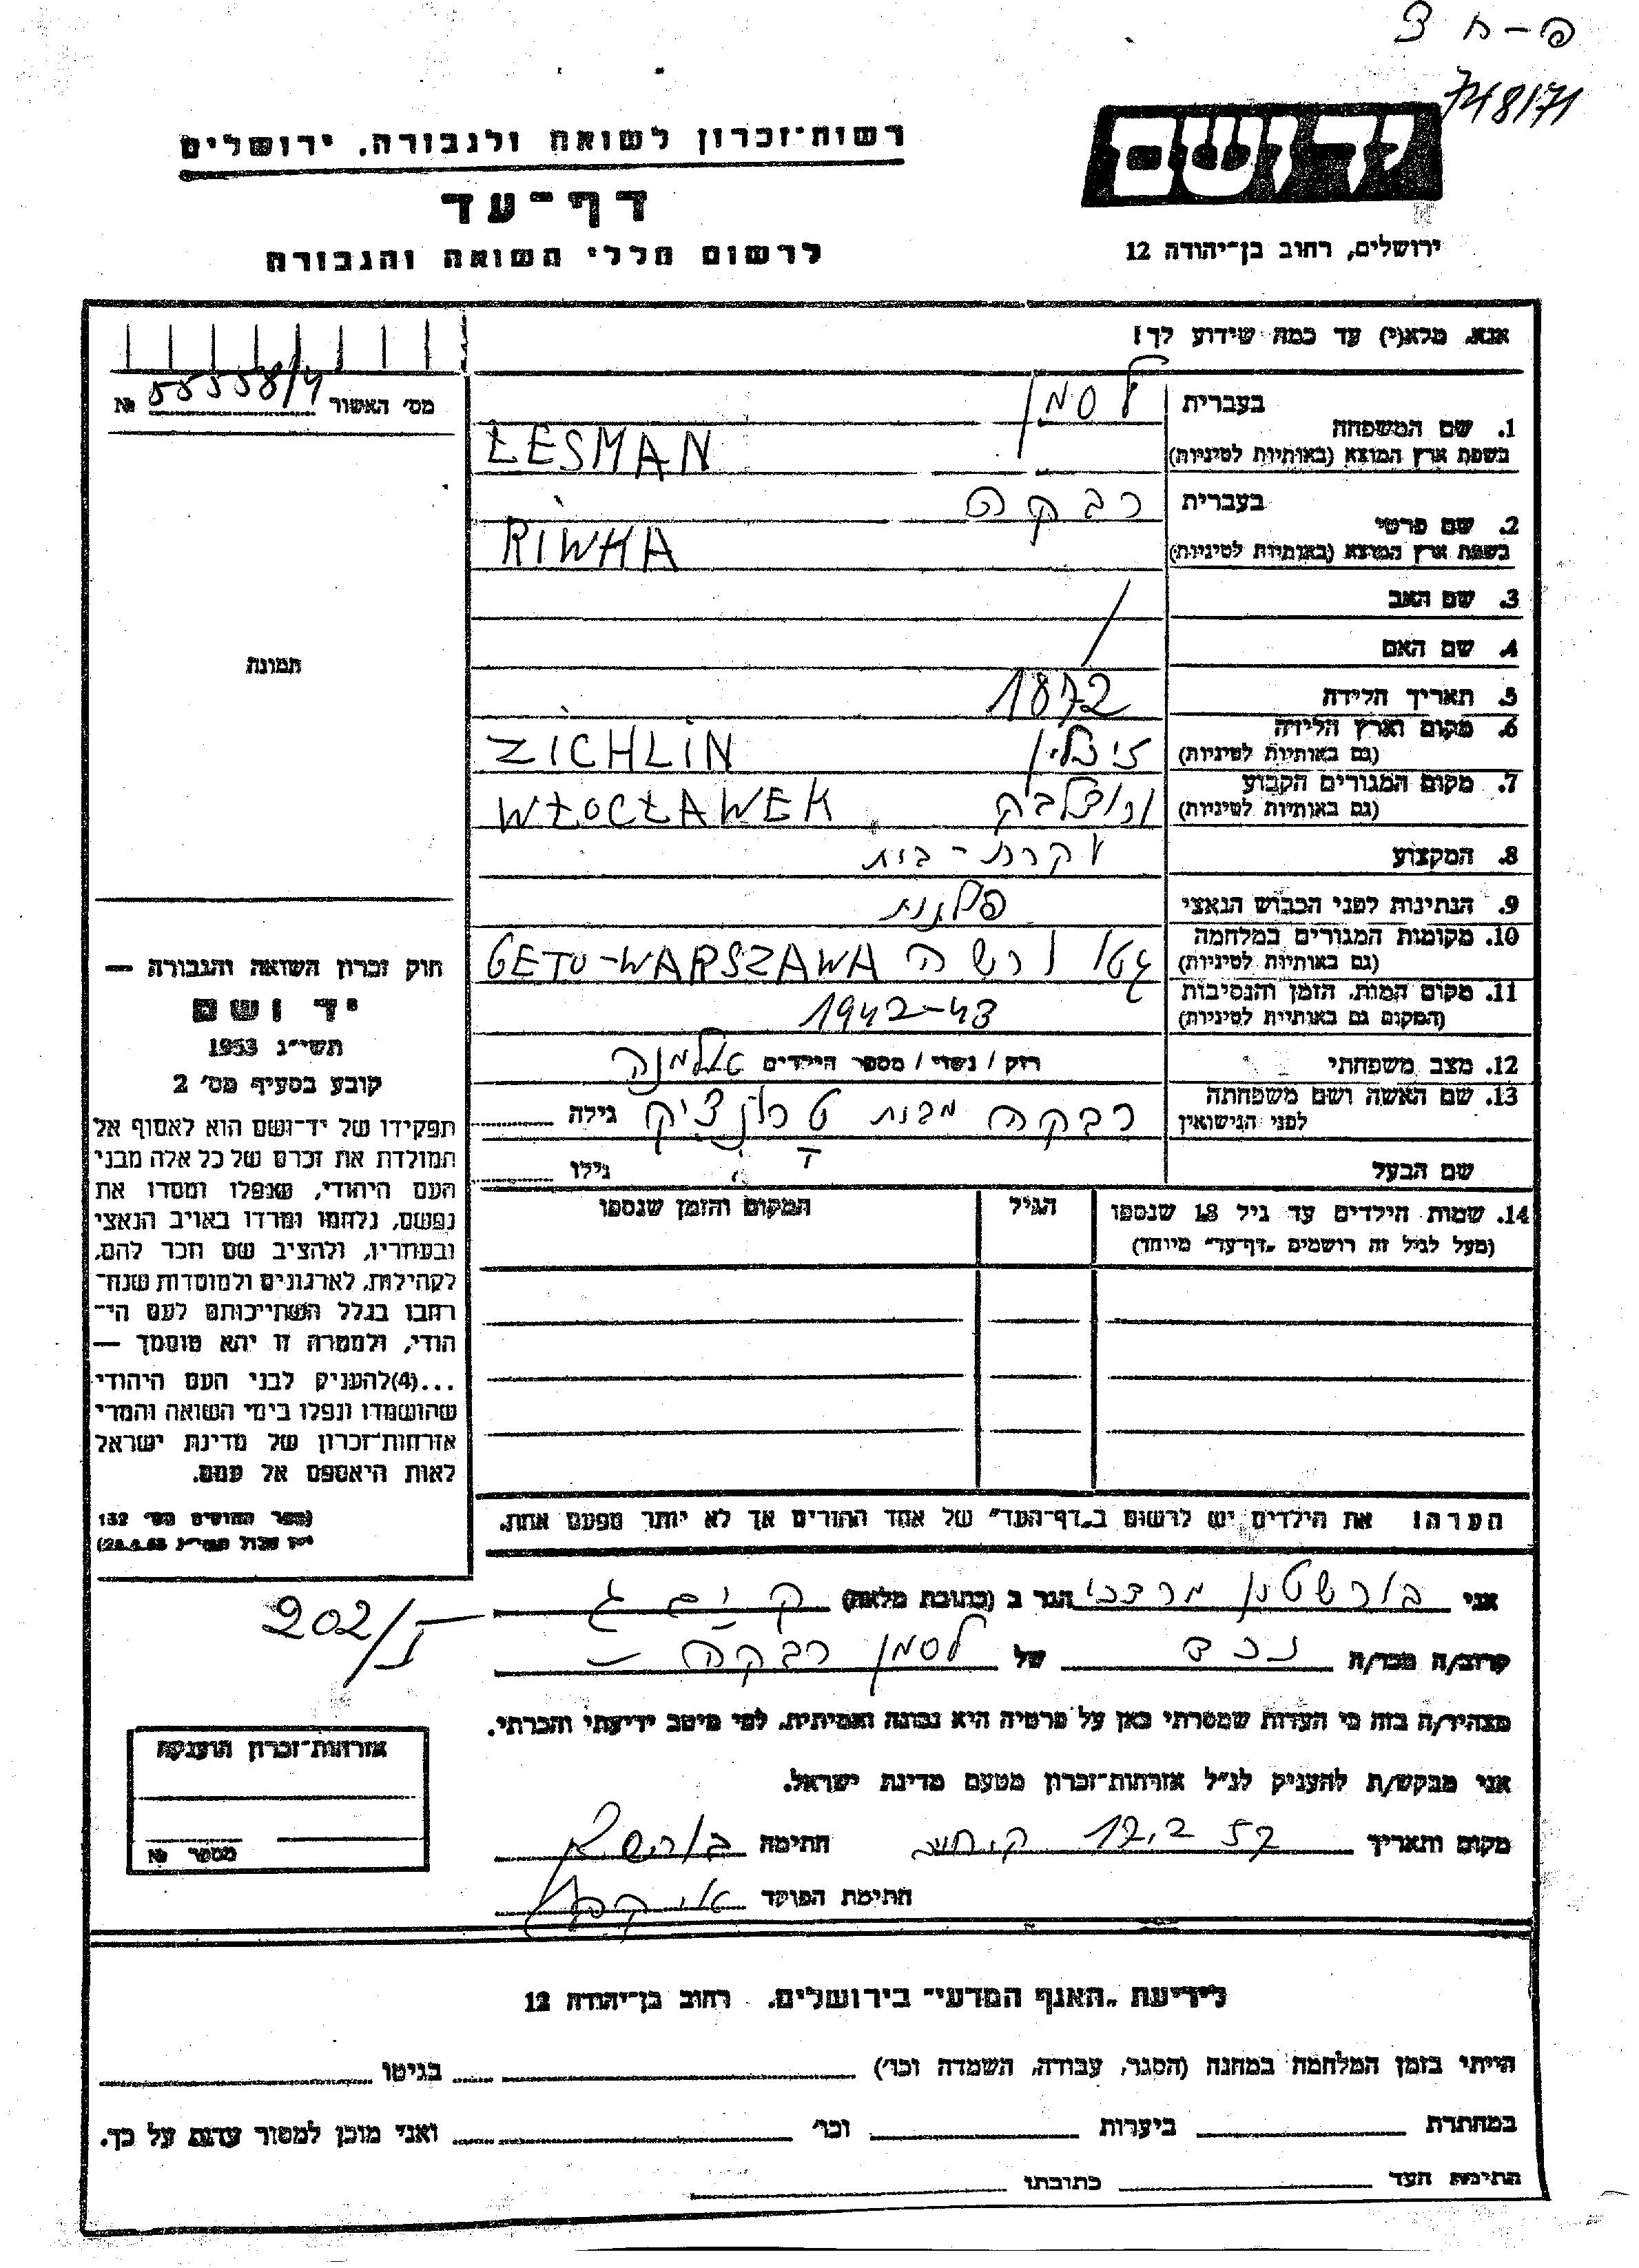 פ-ח צ
748/71
יד ושם
ירושלים, רחוב בן־יהודה 12
רשות־זכרון לשואה ולגבורה, ירושלים
דף־עד
לרשום חללי השואה והגבורה
אנא, מלא(י) עד כמה שידוע לך!
מס' האשור 55558/4 №
תמונה
בעברית לסמן
1. שם המשפחה
בשפת ארץ המוצא (באותיות לטיניות) ŁESMAN
בעברית רבקה
2. שם פרטי
בשפת ארץ המוצא (באותיות לטיניות) RIWHA
3. שם האב
4. שם האם
5. תאריך הלידה 1872
6. מקום וארץ הלידה
(גם באותיות לטיניות) זיכלין ZICHLIN
7. מקום המגורים הקבוע
(גם באותיות לטיניות) WŁOCŁAWEK
8. המקצוע עקרת-בית
9. הנתינות לפני הכבוש הנאצי פולנית
10. מקומות המגורים במלחמה
(גם באותיות לטיניות) גטו ורשה GETO-WARSZAWA
11. מקום המות, הזמן והנסיבות
(המקום גם באותיות לטיניות) 1942-43
12. מצב משפחתי רוק / נשוי / מספר הילדים אלמנה
13. שם האשה ושם משפחתה
לפני הנישואין רבקה מבית גילה
שם הבעל גילו
14. שמות הילדים עד גיל 18 שנספו
(מעל לגיל זה רושמים „דף־עד” מיוחד)
הגיל
המקום והזמן שנספו
חוק זכרון השואה והגבורה —
יד ושם
תשי״ג 1953
קובע בסעיף מס' 2
תפקידו של יד־ושם הוא לאסוף אל
המולדת את זכרם של כל אלה מבני
העם היהודי, שנפלו ומסרו את
נפשם, נלחמו ומרדו באויב הנאצי
ובעוזריו, ולהציב שם וזכר להם,
לקהילות, לארגונים ולמוסדות שנח־
רבו בגלל השתייכותם לעם הי־
הודי, ולמטרה זו יהא מוסמך —
...(4) להעניק לבני העם היהודי
שהושמדו ונפלו בימי השואה והמרי
אזרחות־זכרון של מדינת ישראל
לאות היאספם אל עמם.
(ספר החוקים מס' 132
הערה! את הילדים יש לרשום ב„דף־העד” של אחד ההורים אך לא יותר מפעם אחת.
אני בורשטין מרדכי הגר ב (כתובת מלאה) ק. ים ג
202/I
קרוב/ה מכר/ה נכד של לסמן רבקה
מצהיר/ה בזה כי העדות שמסרתי כאן על פרטיה היא נכונה ואמיתית, לפי מיטב ידיעתי והכרתי.
אני מבקש/ת להעניק לנ״ל אזרחות־זכרון מטעם מדינת ישראל.
מקום ותאריך 57 12.2 חתימה
חתימת הפוקד
אזרחות־זכרון הוענקה
מספר №
לידיעת „האגף המדעי” בירושלים, רחוב בן־יהודה 12
הייתי בזמן המלחמה במחנה (הסגר, עבודה, השמדה וכו') בגיטו
במחתרת ביערות וכו' ואני מוכן למסור עדות על כך.
חתימת העד כתובתו